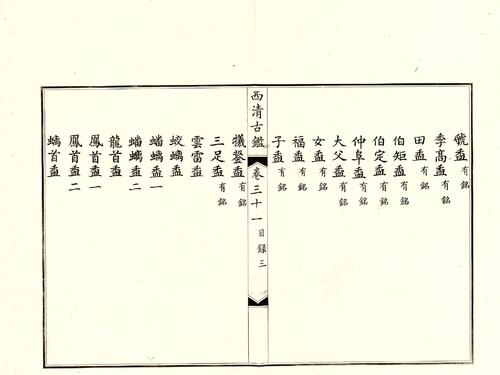 虢盉有銘
季高盉有銘
田盉有銘
伯矩盉有銘
伯定盉有銘
仲阜盉有銘
大父盉有銘
女盉有銘
福盉有銘
子盉有銘
西清古鑑 卷三十一 目錄 三
犧鋬盉有銘
三足盉有銘
雲雷盉
蛟螭盉
蟠螭盉一
蟠螭盉二
龍首盉
鳳首盉一
鳳首盉二
螭首盉